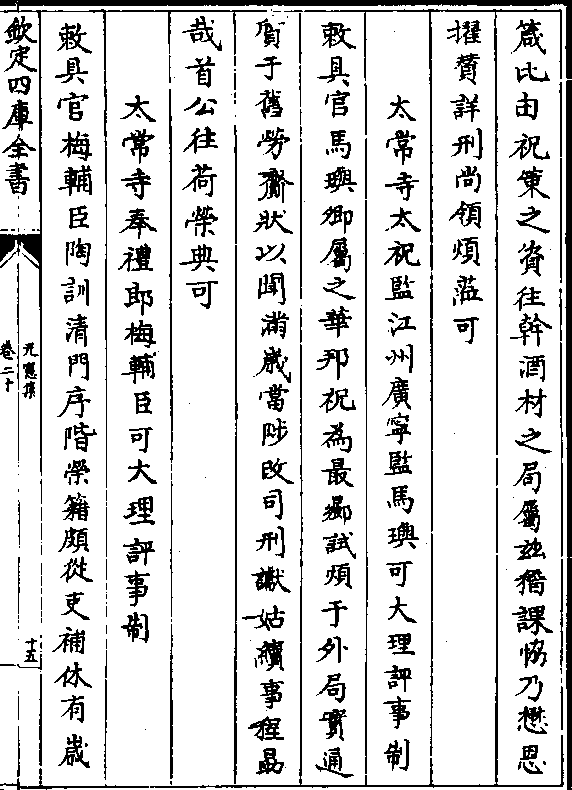 箴比由祝東之資往幹酒材之局屬兹稽課恊乃懋恩
擢贊詳刑尚領煩蒞可
太常寺太祝監江州廣寧監馬璵可大理評事制
敕具官馬璵卿屬之華邦祝為最郷試煩于外局實通
貿于舊勞齋狀以聞滿歳當陟改司刑讞姑續事程勗
哉首公往荷榮典可
太常寺奉禮郎梅輔臣可大理評事制
敕具官梅輔臣陶訓清門序階榮籍頗從吏補休有歳
欽定四庫全書
元憲集
卷二十
十五